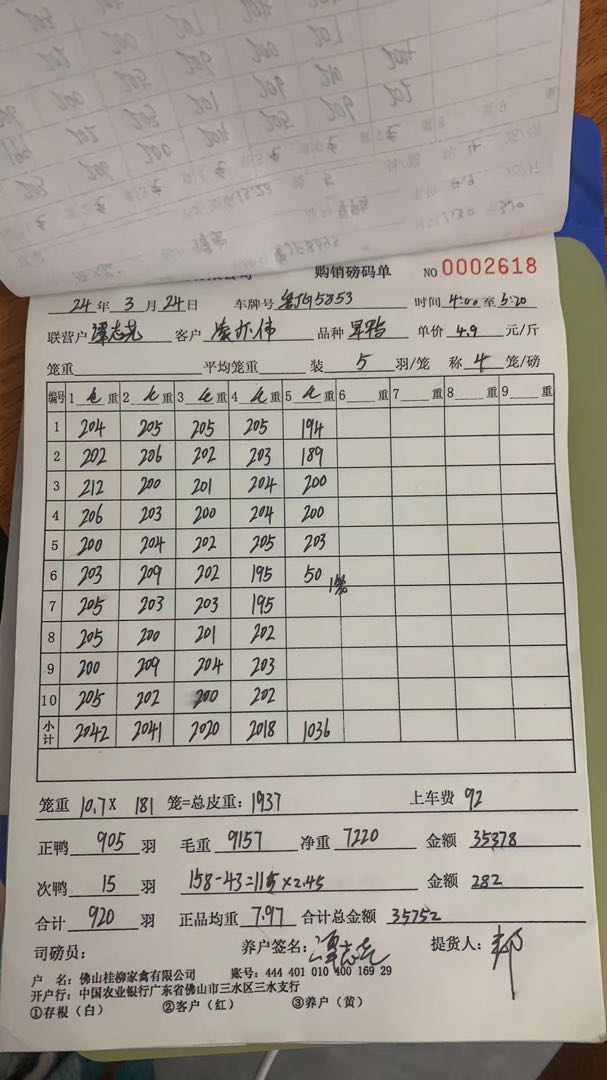 购销磅码单 NO 0002618
24 年 3 月 24 日 车牌号 粤J95853 时间 4:00 至 5:20
联营户 谭志 客户 伟 品种 单价 4.9 元/斤
笼重 平均笼重 装 5 羽/笼 称 4 笼/磅
编号 1 毛 重 2 毛 重 3 毛 重 4 毛 重 5 毛 重 6 重 7 重 8 重 9 重
1 204 205 205 205 194
2 202 206 202 203 189
3 212 200 201 204 200
4 206 203 200 204 200
5 200 204 202 205 203
6 203 209 202 195 50 1笼
7 205 203 203 195
8 205 200 201 202
9 200 209 204 203
10 205 202 200 202
小计 2042 2041 2020 2018 1036
笼重 10.7 X 181 笼=总皮重: 1937 上车费 92
正鸭 905 羽 毛重 9157 净重 7220 金额 35378
次鸭 15 羽 158-43=115×2.45 金额 282
合计 920 羽 正品均重 7.97 合计总金额 35752
司磅员: 养户签名: 谭志 提货人: 邦
户 名: 佛山桂柳家禽有限公司 账号: 444 401 010 400 169 29
开户行: 中国农业银行广东省佛山市三水区三水支行
①存根(白) ②客户(红) ③养户(黄)